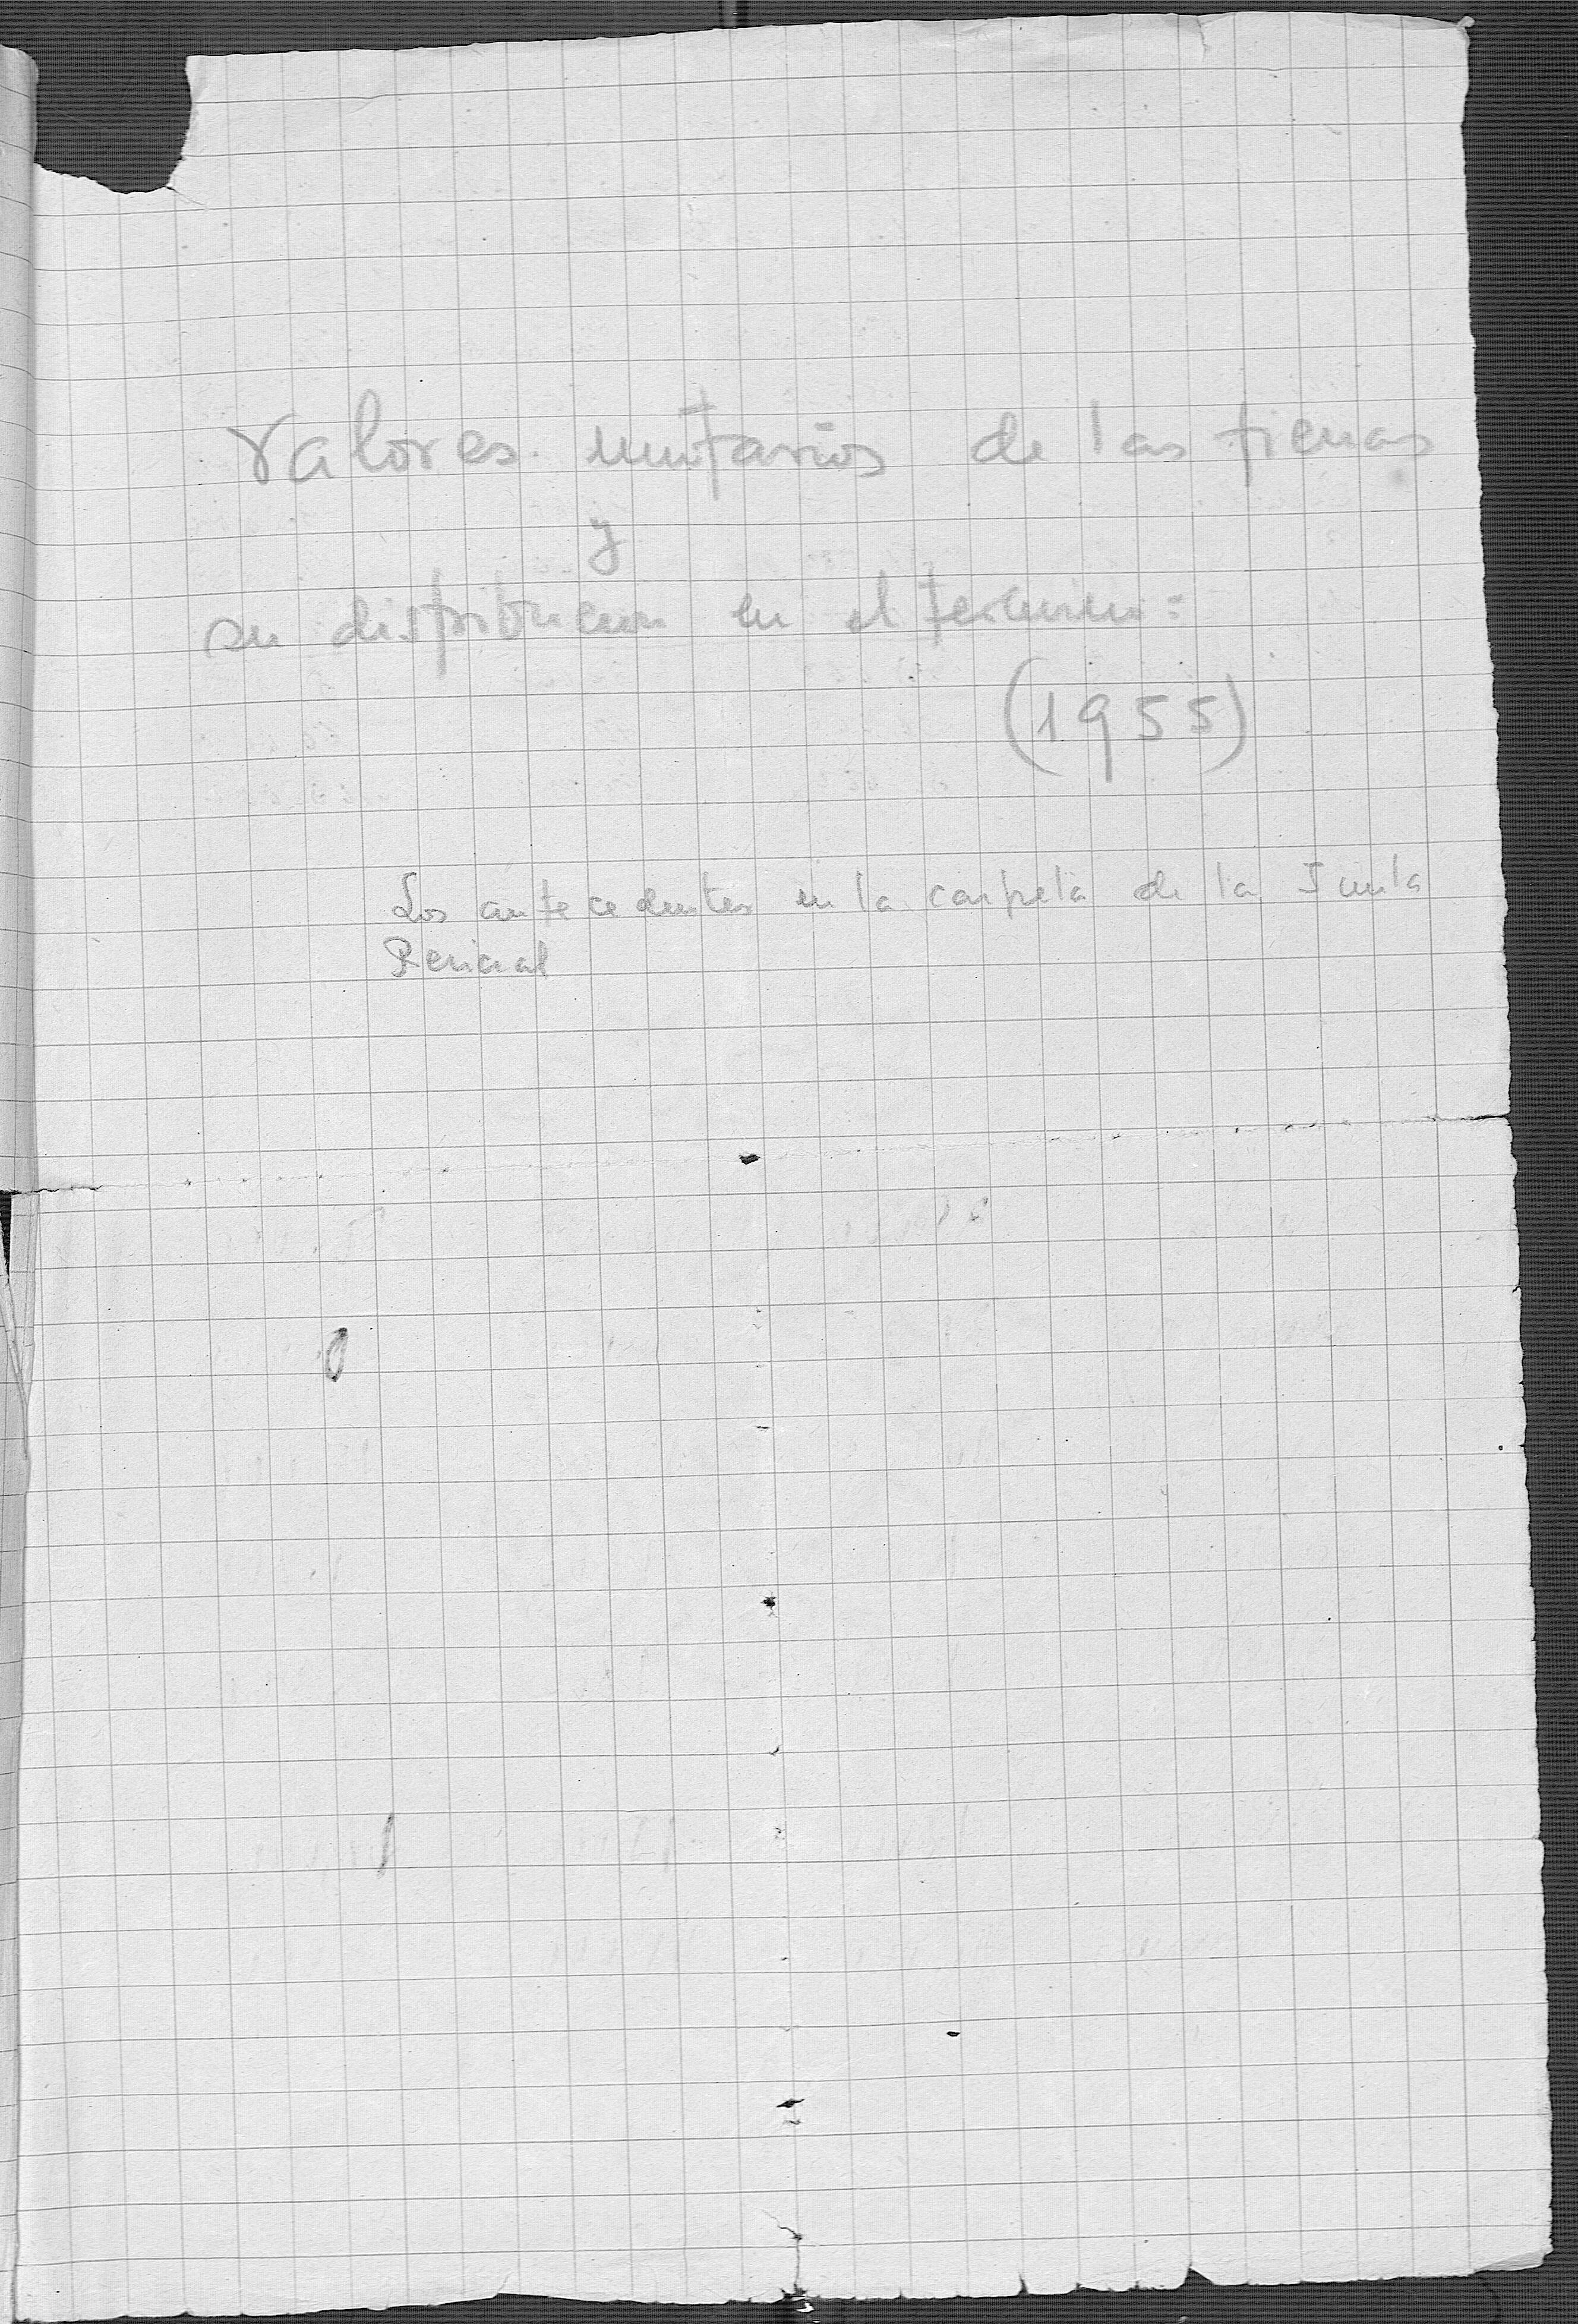 Valores unitarios de las tierras
y
su distribucion en el termino:
(1955)
Los antecedentes en la carpeta de la Junta
Pericial